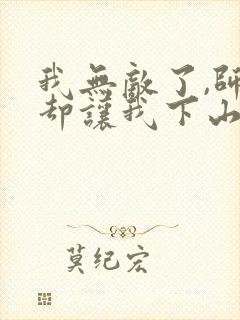 我無敵了,師
却讓我下山
莫纪宏